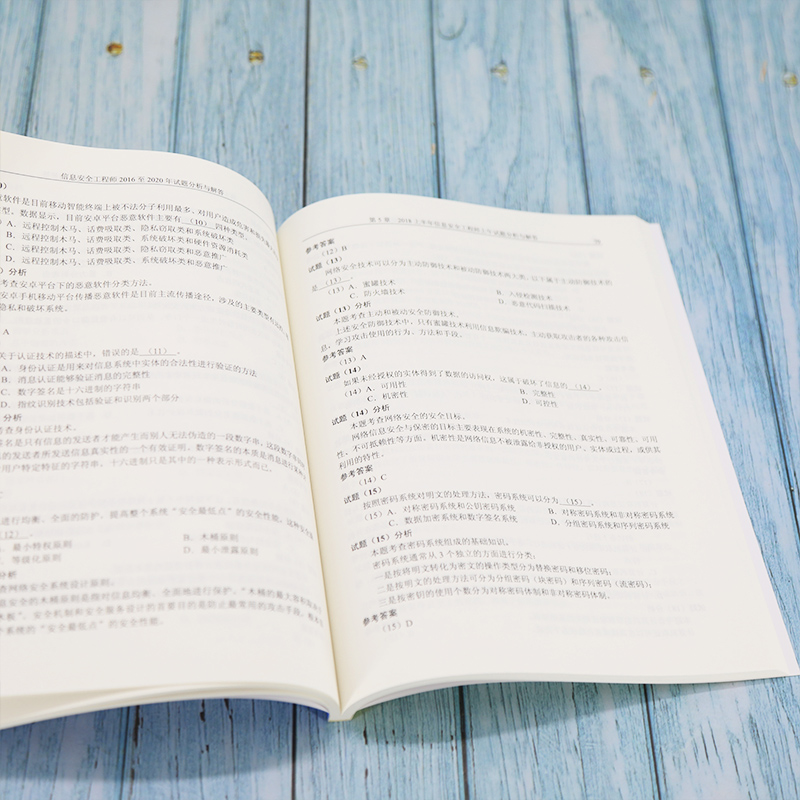 信息安全工程师 2016 至 2020 年试题分析与解答
意软件是目前移动智能终端上被不法分子利用最多、对用户造成危害和损失
类型。数据显示，目前安卓平台恶意软件主要有（10）四种类型。
A．远程控制木马、话费吸取类、隐私窃取类和系统破坏类
B．远程控制木马、话费吸取类、系统破坏类和硬件资源消耗类
C．远程控制木马、话费吸取类、隐私窃取类和恶意推广
D．远程控制木马、话费吸取类、系统破坏类和恶意推广
）分析
考查安卓平台下的恶意软件分类方法。
安卓手机移动平台传播恶意软件是目前主流传播途径，涉及的主要类型
隐私和破坏系统。
A
关于认证技术的描述中，错误的是（11）。
A．身份认证是用来对信息系统中实体的合法性进行验证的方法
B．消息认证能够验证消息的完整性
C．数字签名是十六进制的字符串
D．指纹识别技术包括验证和识别两个部分
分析
考查身份认证技术。
签名是只有信息的发送者才能产生而别人无法伪造的一段数字串，这段数字串同
的发送者所发送信息真实性的一个有效证明。数字签名的本质是消息进行
用户特定特征的字符串，十六进制只是其中的一种表示形式而已。
进行均衡、全面的防护，提高整个系统“安全最低点”的安全性能，这种
（12）。
．最小特权原则
B．木桶原则
．等级化原则
D．最小泄露原则
分析
查网络安全系统设计原则。
息安全的木桶原则是指对信息均衡、全面地进行保护。“木桶的最大容积取决于
木板”。安全机制和安全服务设计的首要目的是防止最常用的攻击手段，根本目
个系统的“安全最低点”的安全性能。
第 5 章 2018 上半年信息安全工程师上午试题分析与解答
参考答案
（12）B
试题（13）
网络安全技术可以分为主动防御技术和被动防御技术两大类，以下属于主动防御技术的
是（13）。
（13）A．蜜罐技术
B．入侵检测技术
C．防火墙技术
D．恶意代码扫描技术
试题（13）分析
本题考查主动和被动安全防御技术。
上述安全防御技术中，只有蜜罐技术利用信息欺骗技术，主动获取攻击者的各种攻击信
息，学习攻击使用的行为、方法和手段。
参考答案
（13）A
试题（14）
如果未经授权的实体得到了数据的访问权，这属于破坏了信息的（14）。
（14）A．可用性
B．完整性
C．机密性
D．可控性
试题（14）分析
本题考查网络安全的安全目标。
网络信息安全与保密的目标主要表现在系统的机密性、完整性、真实性、可靠性、可用
性、不可抵赖性等方面，机密性是网络信息不被泄露给非授权的用户、实体或过程，或供其
利用的特性。
参考答案
（14）C
试题（15）
按照密码系统对明文的处理方法，密码系统可以分为（15）。
（15）A．对称密码系统和公钥密码系统
B．对称密码系统和非对称密码系统
C．数据加密系统和数字签名系统
D．分组密码系统和序列密码系统
试题（15）分析
本题考查密码系统组成的基础知识。
密码系统通常从 3 个独立的方面进行分类：
一是按将明文转化为密文的操作类型分为替换密码和移位密码；
二是按明文的处理方法可分为分组密码（块密码）和序列密码（流密码）；
三是按密钥的使用个数分为对称密码体制和非对称密码体制。
参考答案
（15）D